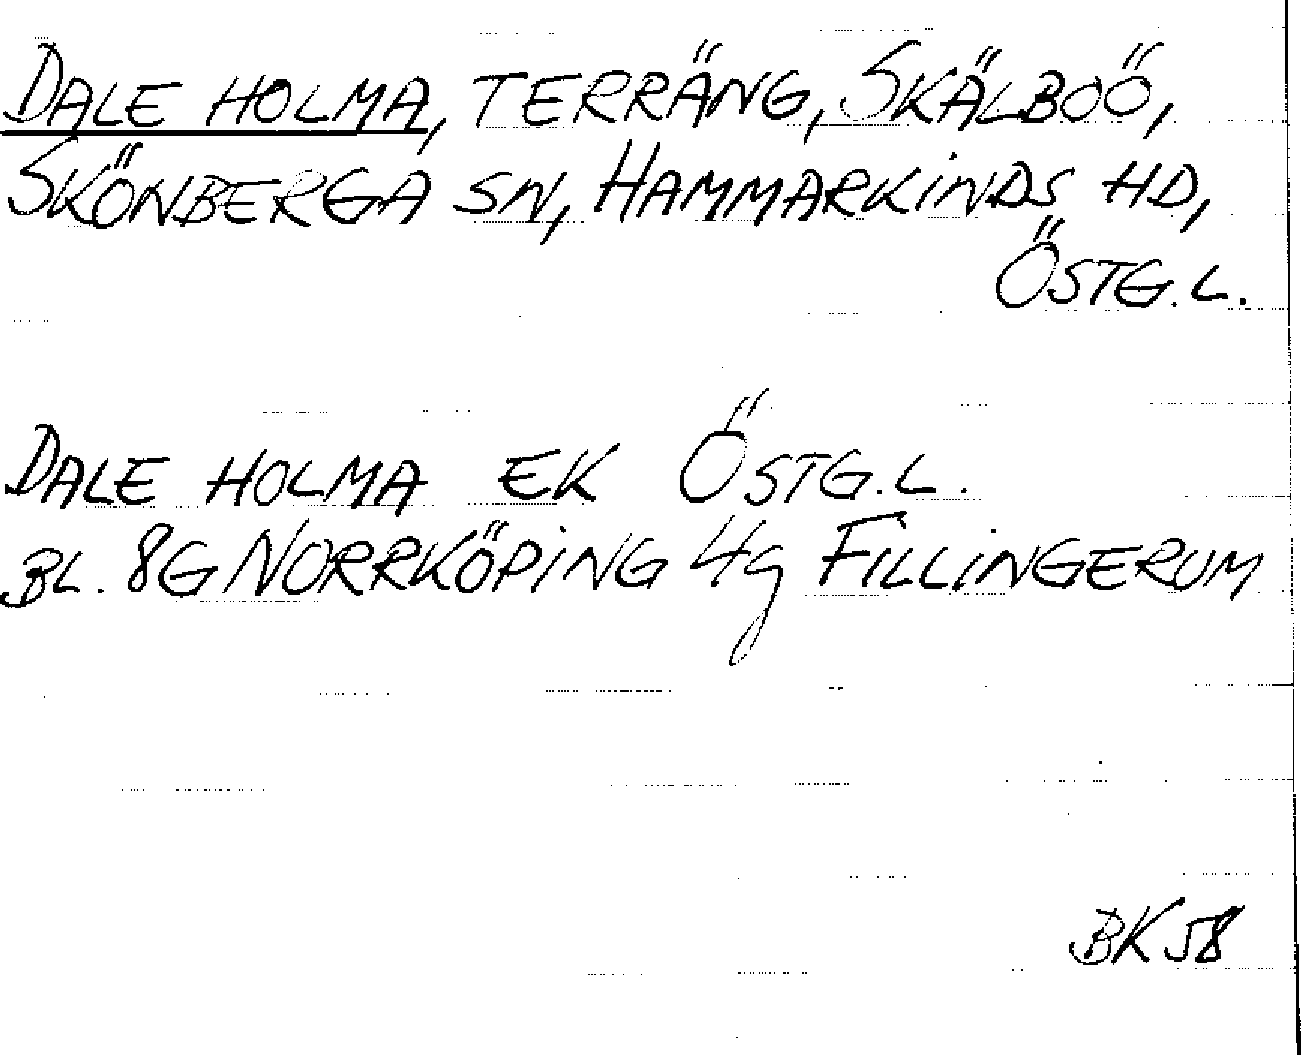 DALE HOLMA, TERRÄNG, SKÄLBOÖ,
SKÖNBERGA SN, HAMMARKINDS HD,
ÖSTG. L.
DALE HOLMA EK ÖSTG. L.
BL. 8G NORRKÖPING 4g FILLINGERUM
BK 58